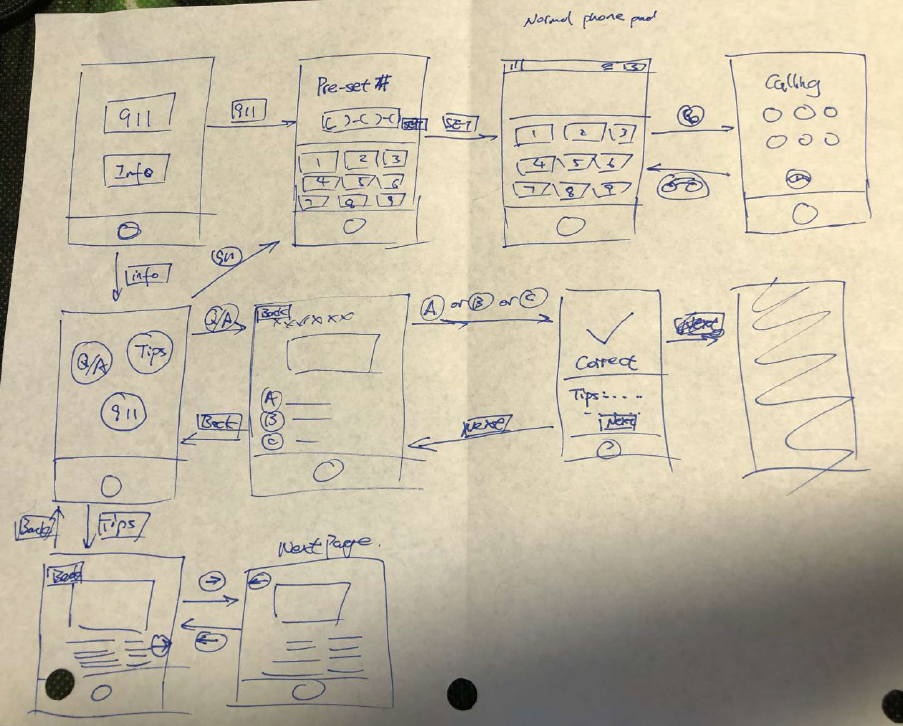 Normal phone pad
911
Info
911
Pre-set #
( )-( )-(
SET
1 2 3
4 5 6
7 8 9
SET
1 2 3
4 5 6
7 8 9
Calling
info
911
Q/A
Tips
911
Q/A
Back
Back
xxxxxxx
A
B
C
A or B or C
Correct
Tips:....
Next
Next
Next
Back
Tips
Back
→
→
←
Next Page.
←